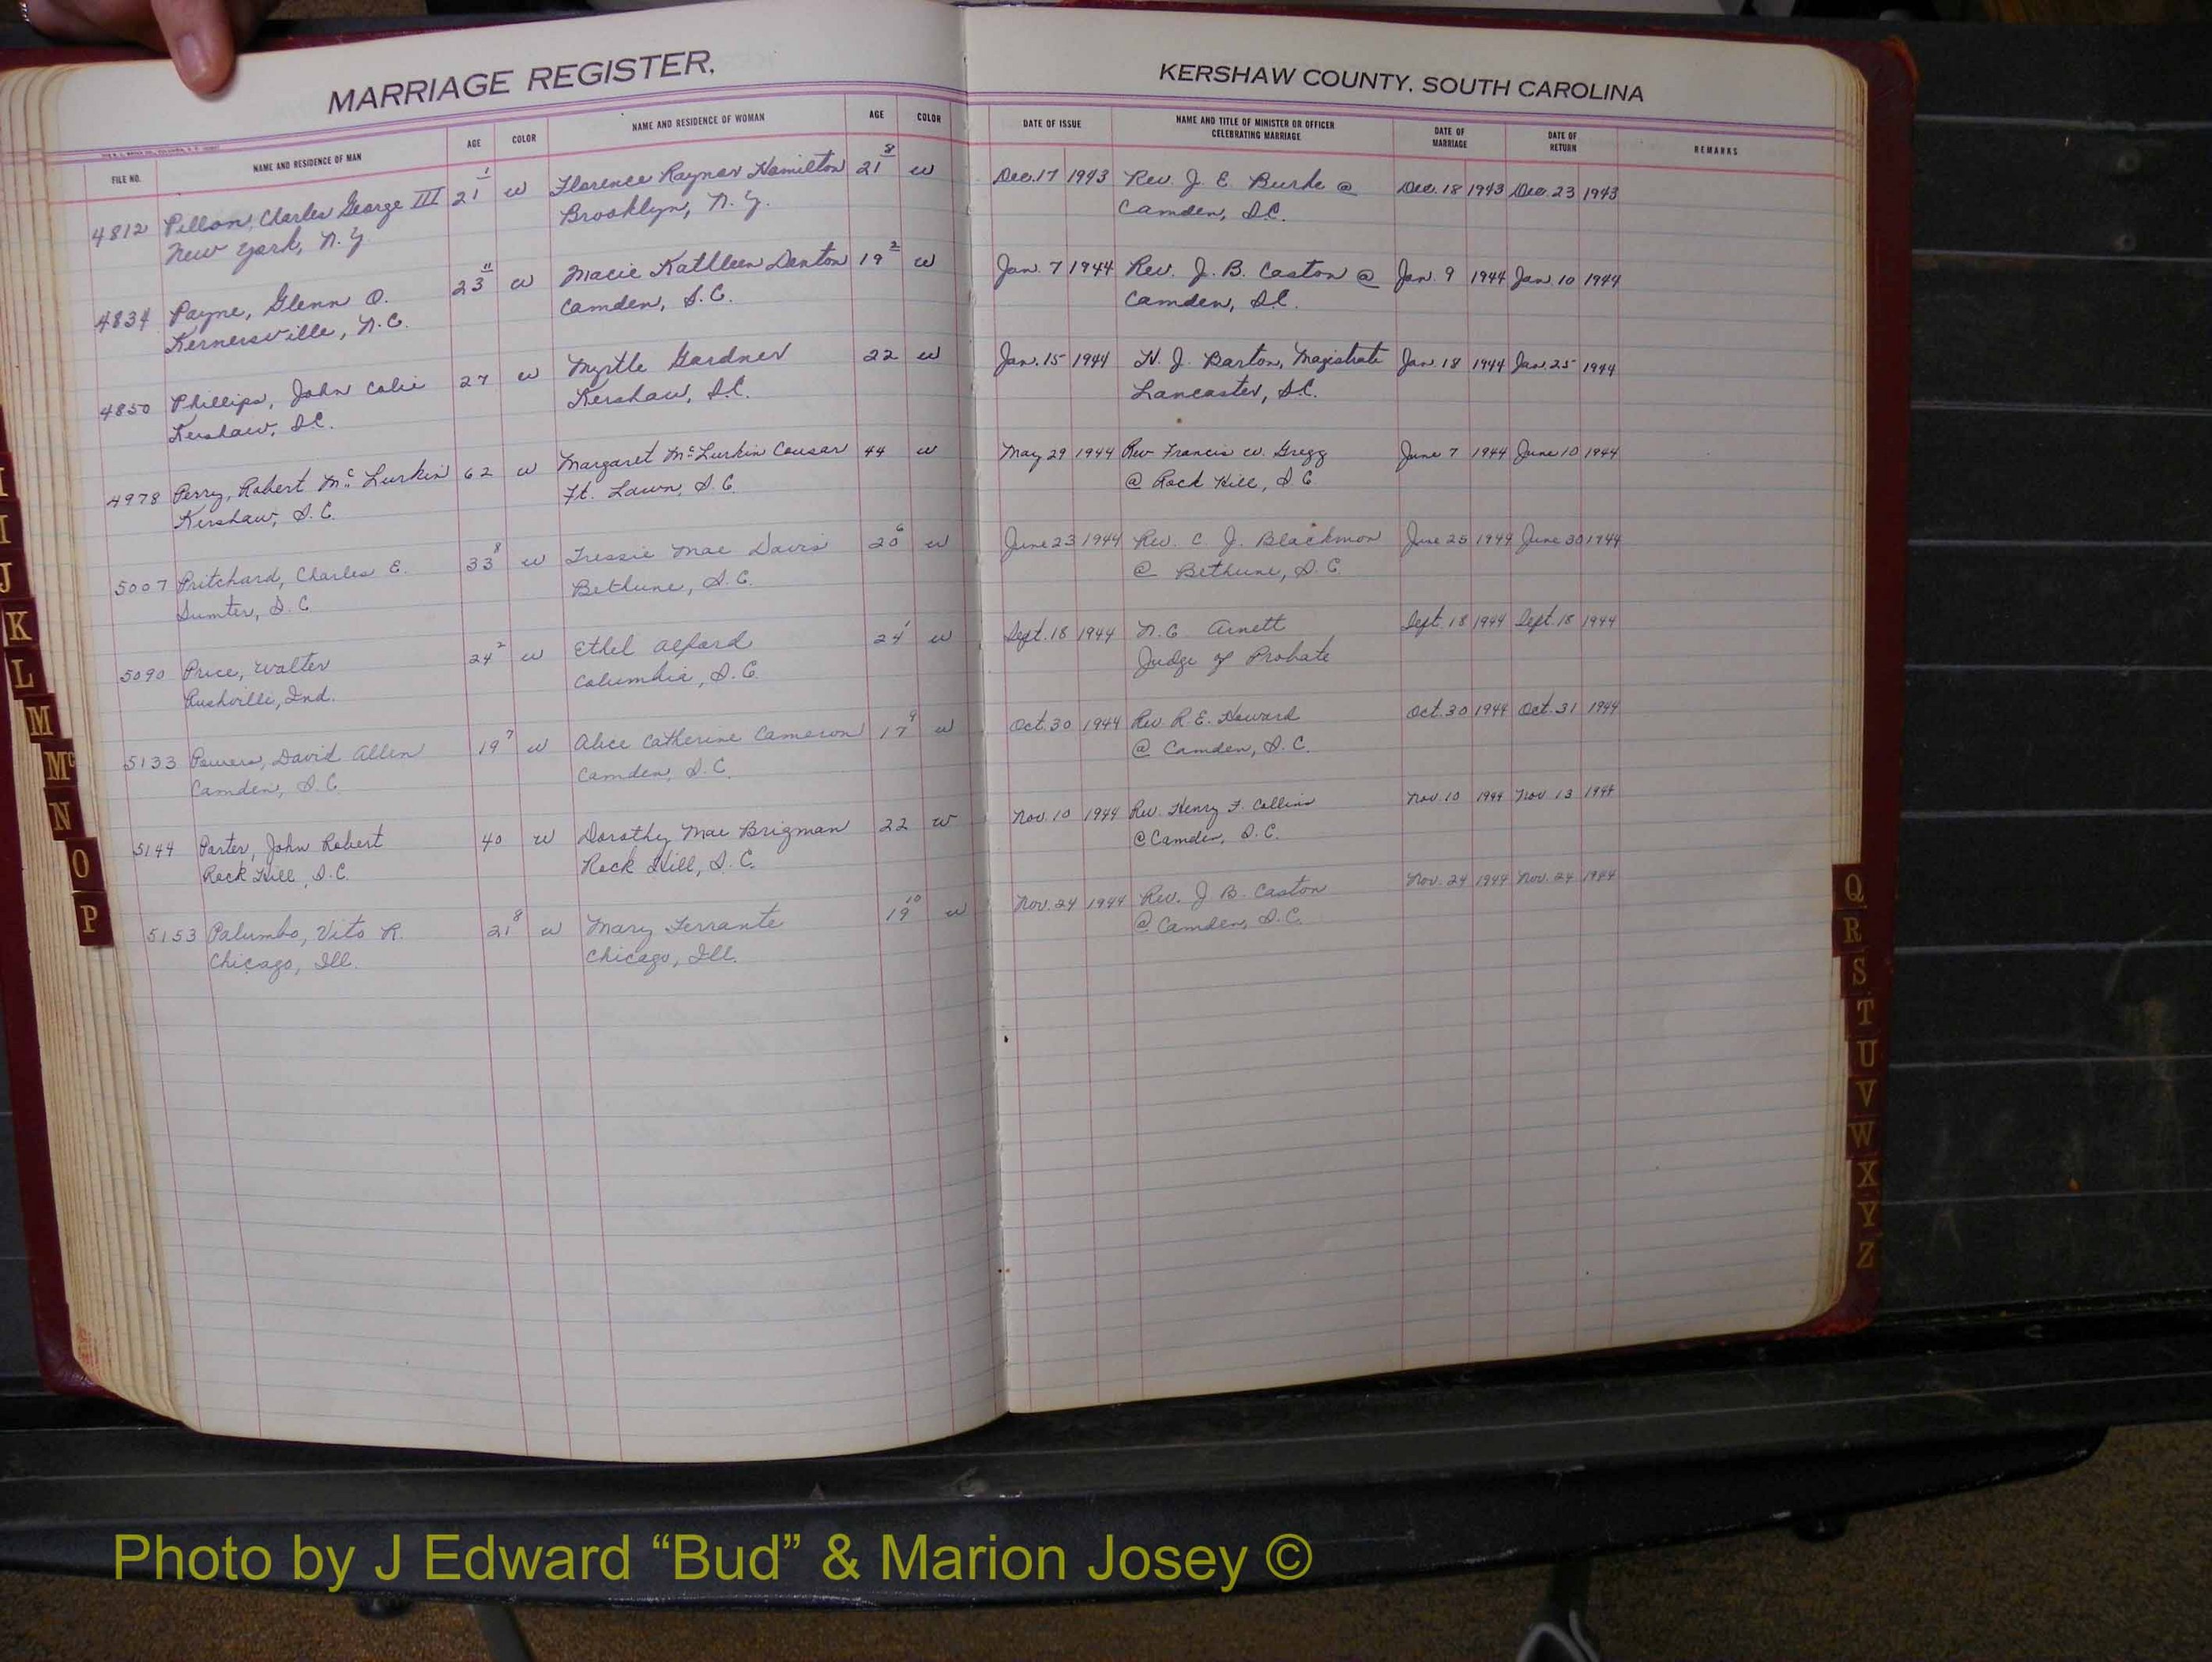 MARRIAGE REGISTER.
KERSHAW COUNTY, SOUTH CAROLINA
FILE NO. NAME AND RESIDENCE OF MAN AGE COLOR NAME AND RESIDENCE OF WOMAN AGE COLOR DATE OF ISSUE NAME AND TITLE OF MINISTER OR OFFICER CELEBRATING MARRIAGE DATE OF MARRIAGE DATE OF RETURN REMARKS
4812 Pillon, Charles George III 21 1 w Florence Raynor Hamilton 21 8 w Dec. 17 1943 Rev. J. E. Burke @ Dec. 18 1943 Dec. 23 1943
New York, N.Y. Brooklyn, N.Y. Camden, S.C.
4834 Payne, Glenn O. 23 11 w Macie Kathleen Denton 19 2 w Jan. 7 1944 Rev. J. B. Caston @ Jan. 9 1944 Jan. 10 1944
Kernersville, N.C. Camden, S.C. Camden, S.C.
4850 Phillips, John Colie 27 w Myrtle Gardner 22 w Jan. 15 1944 Barton, Magistrate Jan. 18 1944 Jan. 25 1944
Kershaw, S.C. Kershaw, S.C. Lancaster, S.C.
4978 Perry, Robert Mc Lurkin 62 w Margaret McLurkin Cousar 44 w May 29 1944 Rev Francis W. Gregg June 7 1944 June 10 1944
Kershaw, S.C. Ft. Lawn, S.C. @ Rock Hill, S.C.
5007 Pritchard, Charles E. 33 8 w Tressie Mae Davis 20 6 w June 23 1944 Rev. C. J. Blackmon June 25 1944 June 30 1944
Sumter, S.C. Bethune, S.C. @ Bethune, S.C.
5090 Price, Walter 24 2 w Ethel Alford 24 1 w Sept. 18 1944 N. C. Arnett Sept. 18 1944 Sept. 18 1944
Rushville, Ind. Columbia, S.C. Judge of Probate
5133 Powers, David Allen 19 7 w Alice Catherine Cameron 17 9 w Oct. 30 1944 Rev. R. E. Howard Oct. 30 1944 Oct. 31 1944
Camden, S.C. Camden, S.C. @ Camden, S.C.
5144 Porter, John Robert 40 w Dorothy Mae Brigman 22 w Nov. 10 1944 Rev. Henry F. Collins Nov. 10 1944 Nov. 13 1944
Rock Hill, S.C. Rock Hill, S.C. @ Camden, S.C.
5153 Palumbo, Vito R. 21 8 w Mary Ferrante 19 10 w Nov. 24 1944 Rev. J. B. Caston Nov. 24 1944 Nov. 24 1944
Chicago, Ill. Chicago, Ill. @ Camden, S.C.
J
K
L
M
Mc
N
O
P
Q
R
S
T
U
V
W
X
Y
Z
Photo by J Edward “Bud” & Marion Josey ©